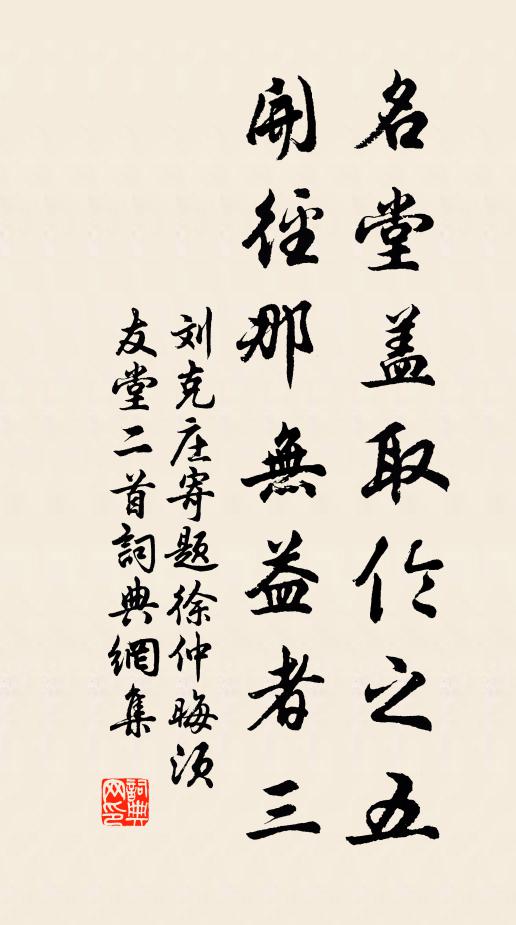 名堂盖取伦之五
開徑那無益者三
刘克庄寄题徐仲晦须
友堂二首詞典網集
詞典
网印